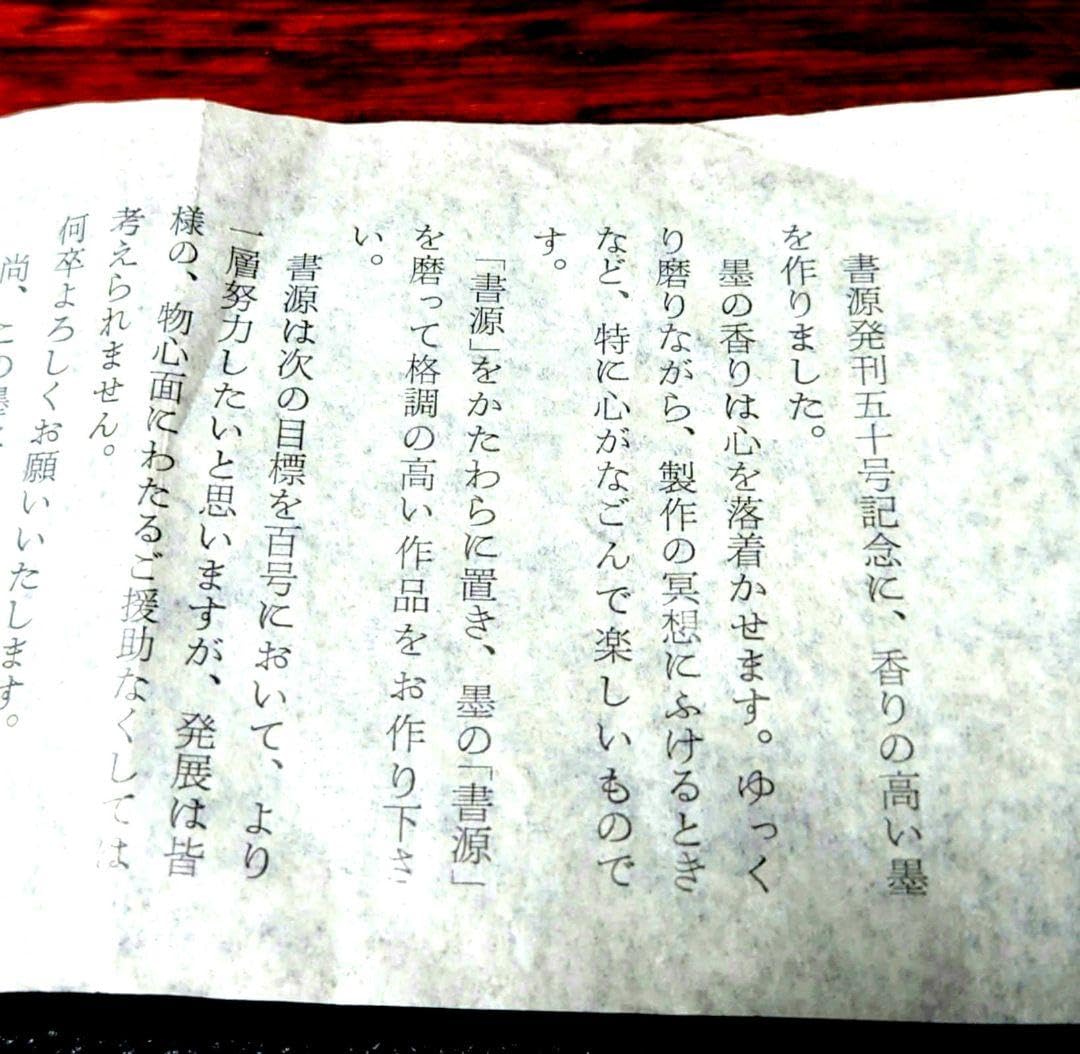 書源発刊五十号記念に、香りの高い墨
を作りました。
墨の香りは心を落着かせます。ゆっく
り磨りながら、製作の冥想にふけるとき
など、特に心がなごんで楽しいもので
す。
「書源」をかたわらに置き、墨の「書源」
を磨って格調の高い作品をお作り下さ
い。
書源は次の目標を百号において、より
一層努力したいと思いますが、発展は皆
様の、物心面にわたるご援助なくしては
考えられません。
何卒よろしくお願いいたします。
尚、この墨